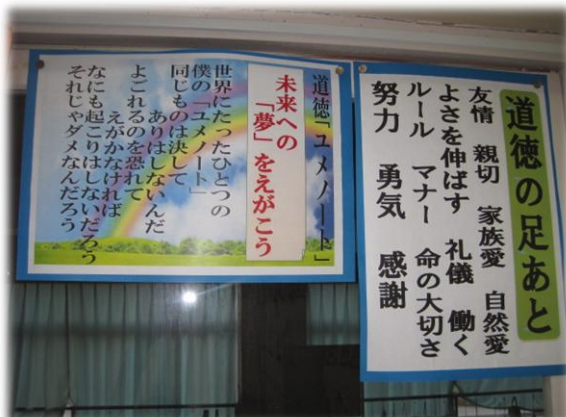 道徳の足あと
友情 親切 家族愛 自然愛
よさを伸ばす 礼儀 働く
ルール マナー 命の大切さ
努力 勇気 感謝
道徳「ユメノート」
未来への
「夢」をえがこう
世界にたったひとつの
僕の「ユメノート」
同じものは決して
ありはしないんだ
よごれるのを恐れて
えがかなければ
なにも起こりはしないだろう
それじゃダメなんだろう